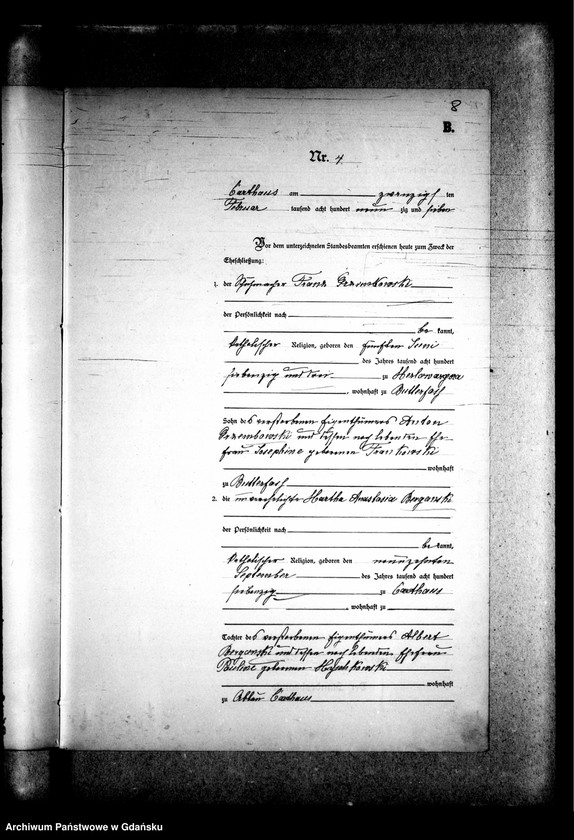 8
B.
Nr. 4.
Carthaus am zwanzigsten
Februar tausend acht hundert neunzig und sieben
Vor dem unterzeichneten Standesbeamten erschienen heute zum Zweck der
Eheschließung:
1. der Schuhmacher Franz
der Persönlichkeit nach
bekannt,
katholischer Religion, geboren den fünften Juni
des Jahres tausend acht hundert
siebenzig und drei zu
, wohnhaft zu Butterfaß
Sohn des verstorbenen Eigenthümers Anton
und dessen noch lebenden Ehe-
frau Josephine geborenen
wohnhaft
zu Butterfaß
2. die unverehelichte Martha Anastasia
der Persönlichkeit nach
bekannt,
katholischer Religion, geboren den neunzehnten
September des Jahres tausend acht hundert
siebenzig zu Carthaus
, wohnhaft zu
Tochter des verstorbenen Eigenthümers Albert
und dessen noch lebenden Ehefrau
geborenen
wohnhaft
zu Abbau Carthaus
Archiwum Państwowe w Gdańsku